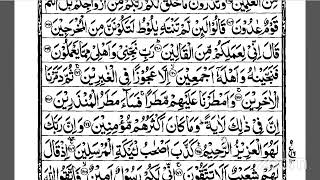 مِنَ الْعٰلَمِيْنَ وَتَذَرُوْنَ مَا خَلَقَ لَكُمْ رَبُّكُمْ مِّنْ اَزْوَاجِكُمْ بَلْ اَنْتُمْ
قَوْمٌ عٰدُوْنَ قَالُوْا لَئِنْ لَّمْ تَنْتَهِ يٰلُوْطُ لَتَكُوْنَنَّ مِنَ الْمُخْرَجِيْنَ
قَالَ اِنِّيْ لِعَمَلِكُمْ مِّنَ الْقَالِيْنَ رَبِّ نَجِّنِيْ وَاَهْلِيْ مِمَّا يَعْمَلُوْنَ
فَنَجَّيْنٰهُ وَاَهْلَهٗۤ اَجْمَعِيْنَ اِلَّا عَجُوْزًا فِي الْغٰبِرِيْنَ ثُمَّ دَمَّرْنَا
الْاٰخَرِيْنَ وَاَمْطَرْنَا عَلَيْهِمْ مَّطَرًا فَسَآءَ مَطَرُ الْمُنْذَرِيْنَ
اِنَّ فِيْ ذٰلِكَ لَاٰيَةً وَمَا كَانَ اَكْثَرُهُمْ مُّؤْمِنِيْنَ وَاِنَّ رَبَّكَ
لَهُوَ الْعَزِيْزُ الرَّحِيْمُ كَذَّبَ اَصْحٰبُ لْئَيْكَةِ الْمُرْسَلِيْنَ اِذْ قَالَ
لَهُمْ شُعَيْبٌ اَلَا تَتَّقُوْنَ اِنِّيْ لَكُمْ رَسُوْلٌ اَمِيْنٌ فَاتَّقُوا اللّٰهَ